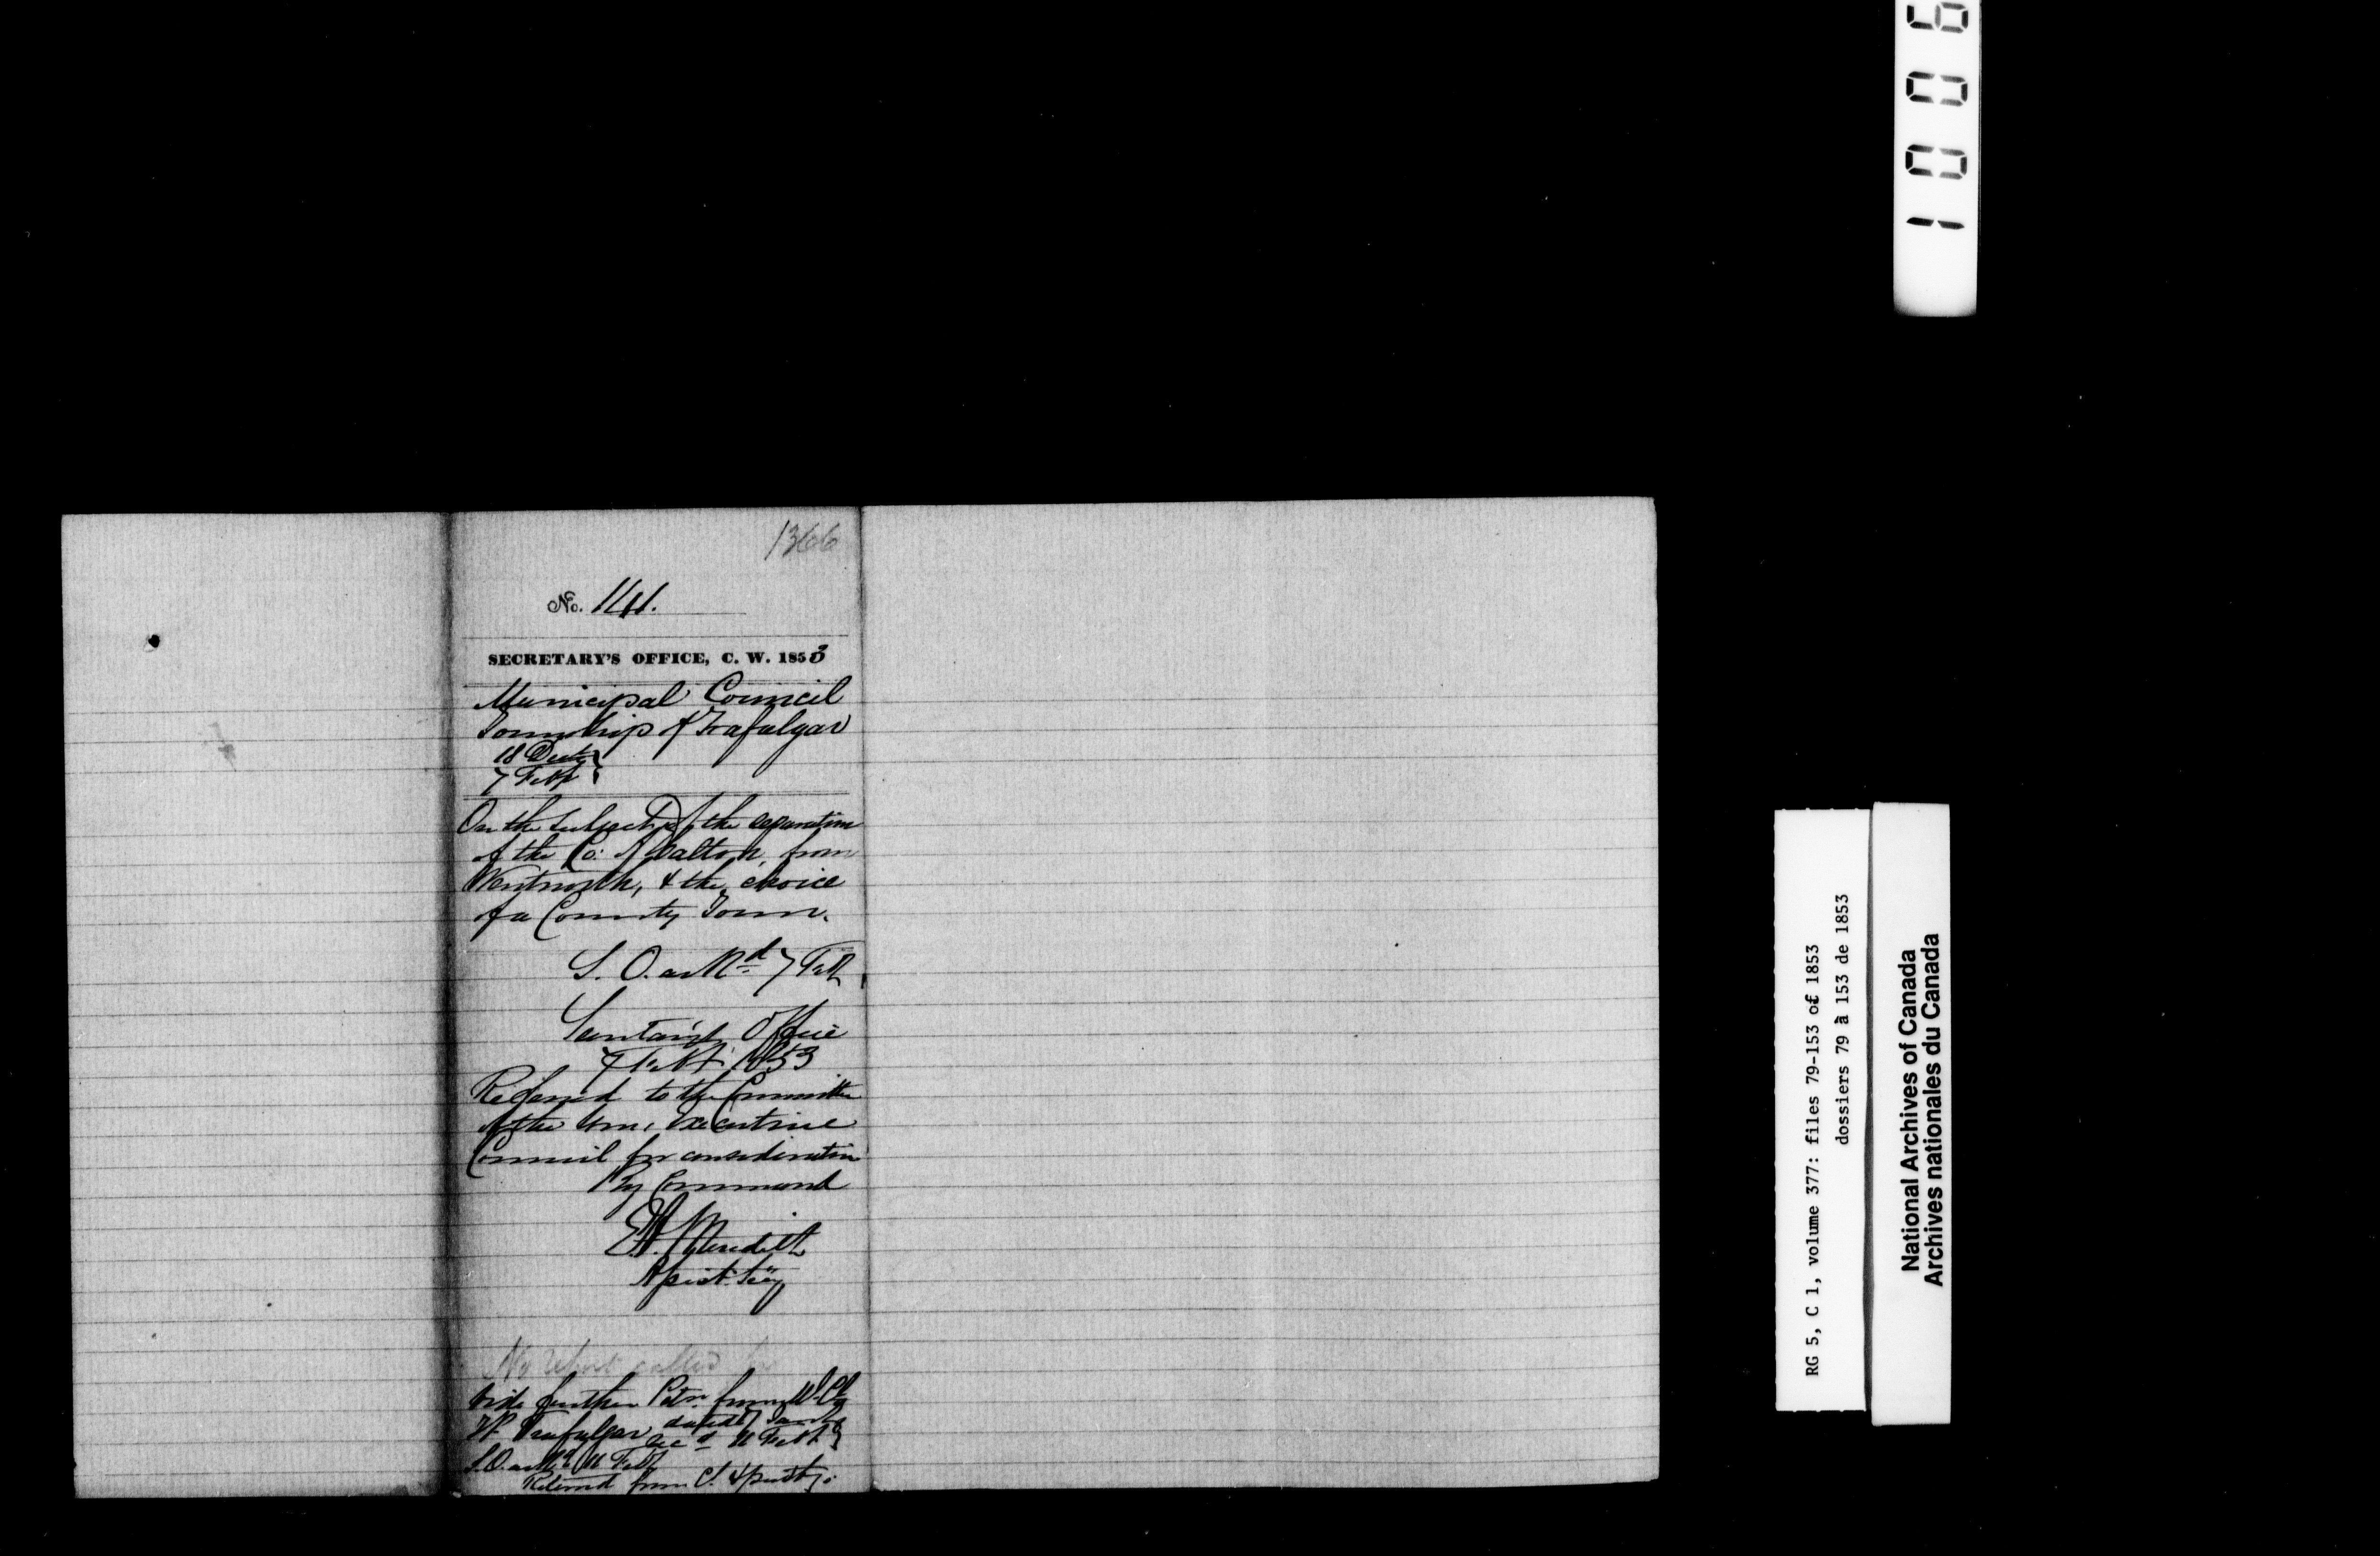 1366
No. 141.
SECRETARY'S OFFICE, C. W. 1853
Municipal Council
Township of Trafalgar
18 Decr
7 Feby
On the subject of the separation
of the Co: of Halton, from
Wentworth, & the choice
of a County Town.
S. O. 7 Feby
Secretary's Office
7 Feby 1853
Referred to the Committee
of the Hon. Executive
Council for consideration
By Command
E.A. Meredith
Assist. Secy
No report called for
Vide further Petn. from
Tp. Trafalgar dated 7
Recd 11 Feby
S.O. 11 Feby
Returned from
1006
RG 5, C 1, volume 377: files 79-153 of 1853
dossiers 79 à 153 de 1853
National Archives of Canada
Archives nationales du Canada